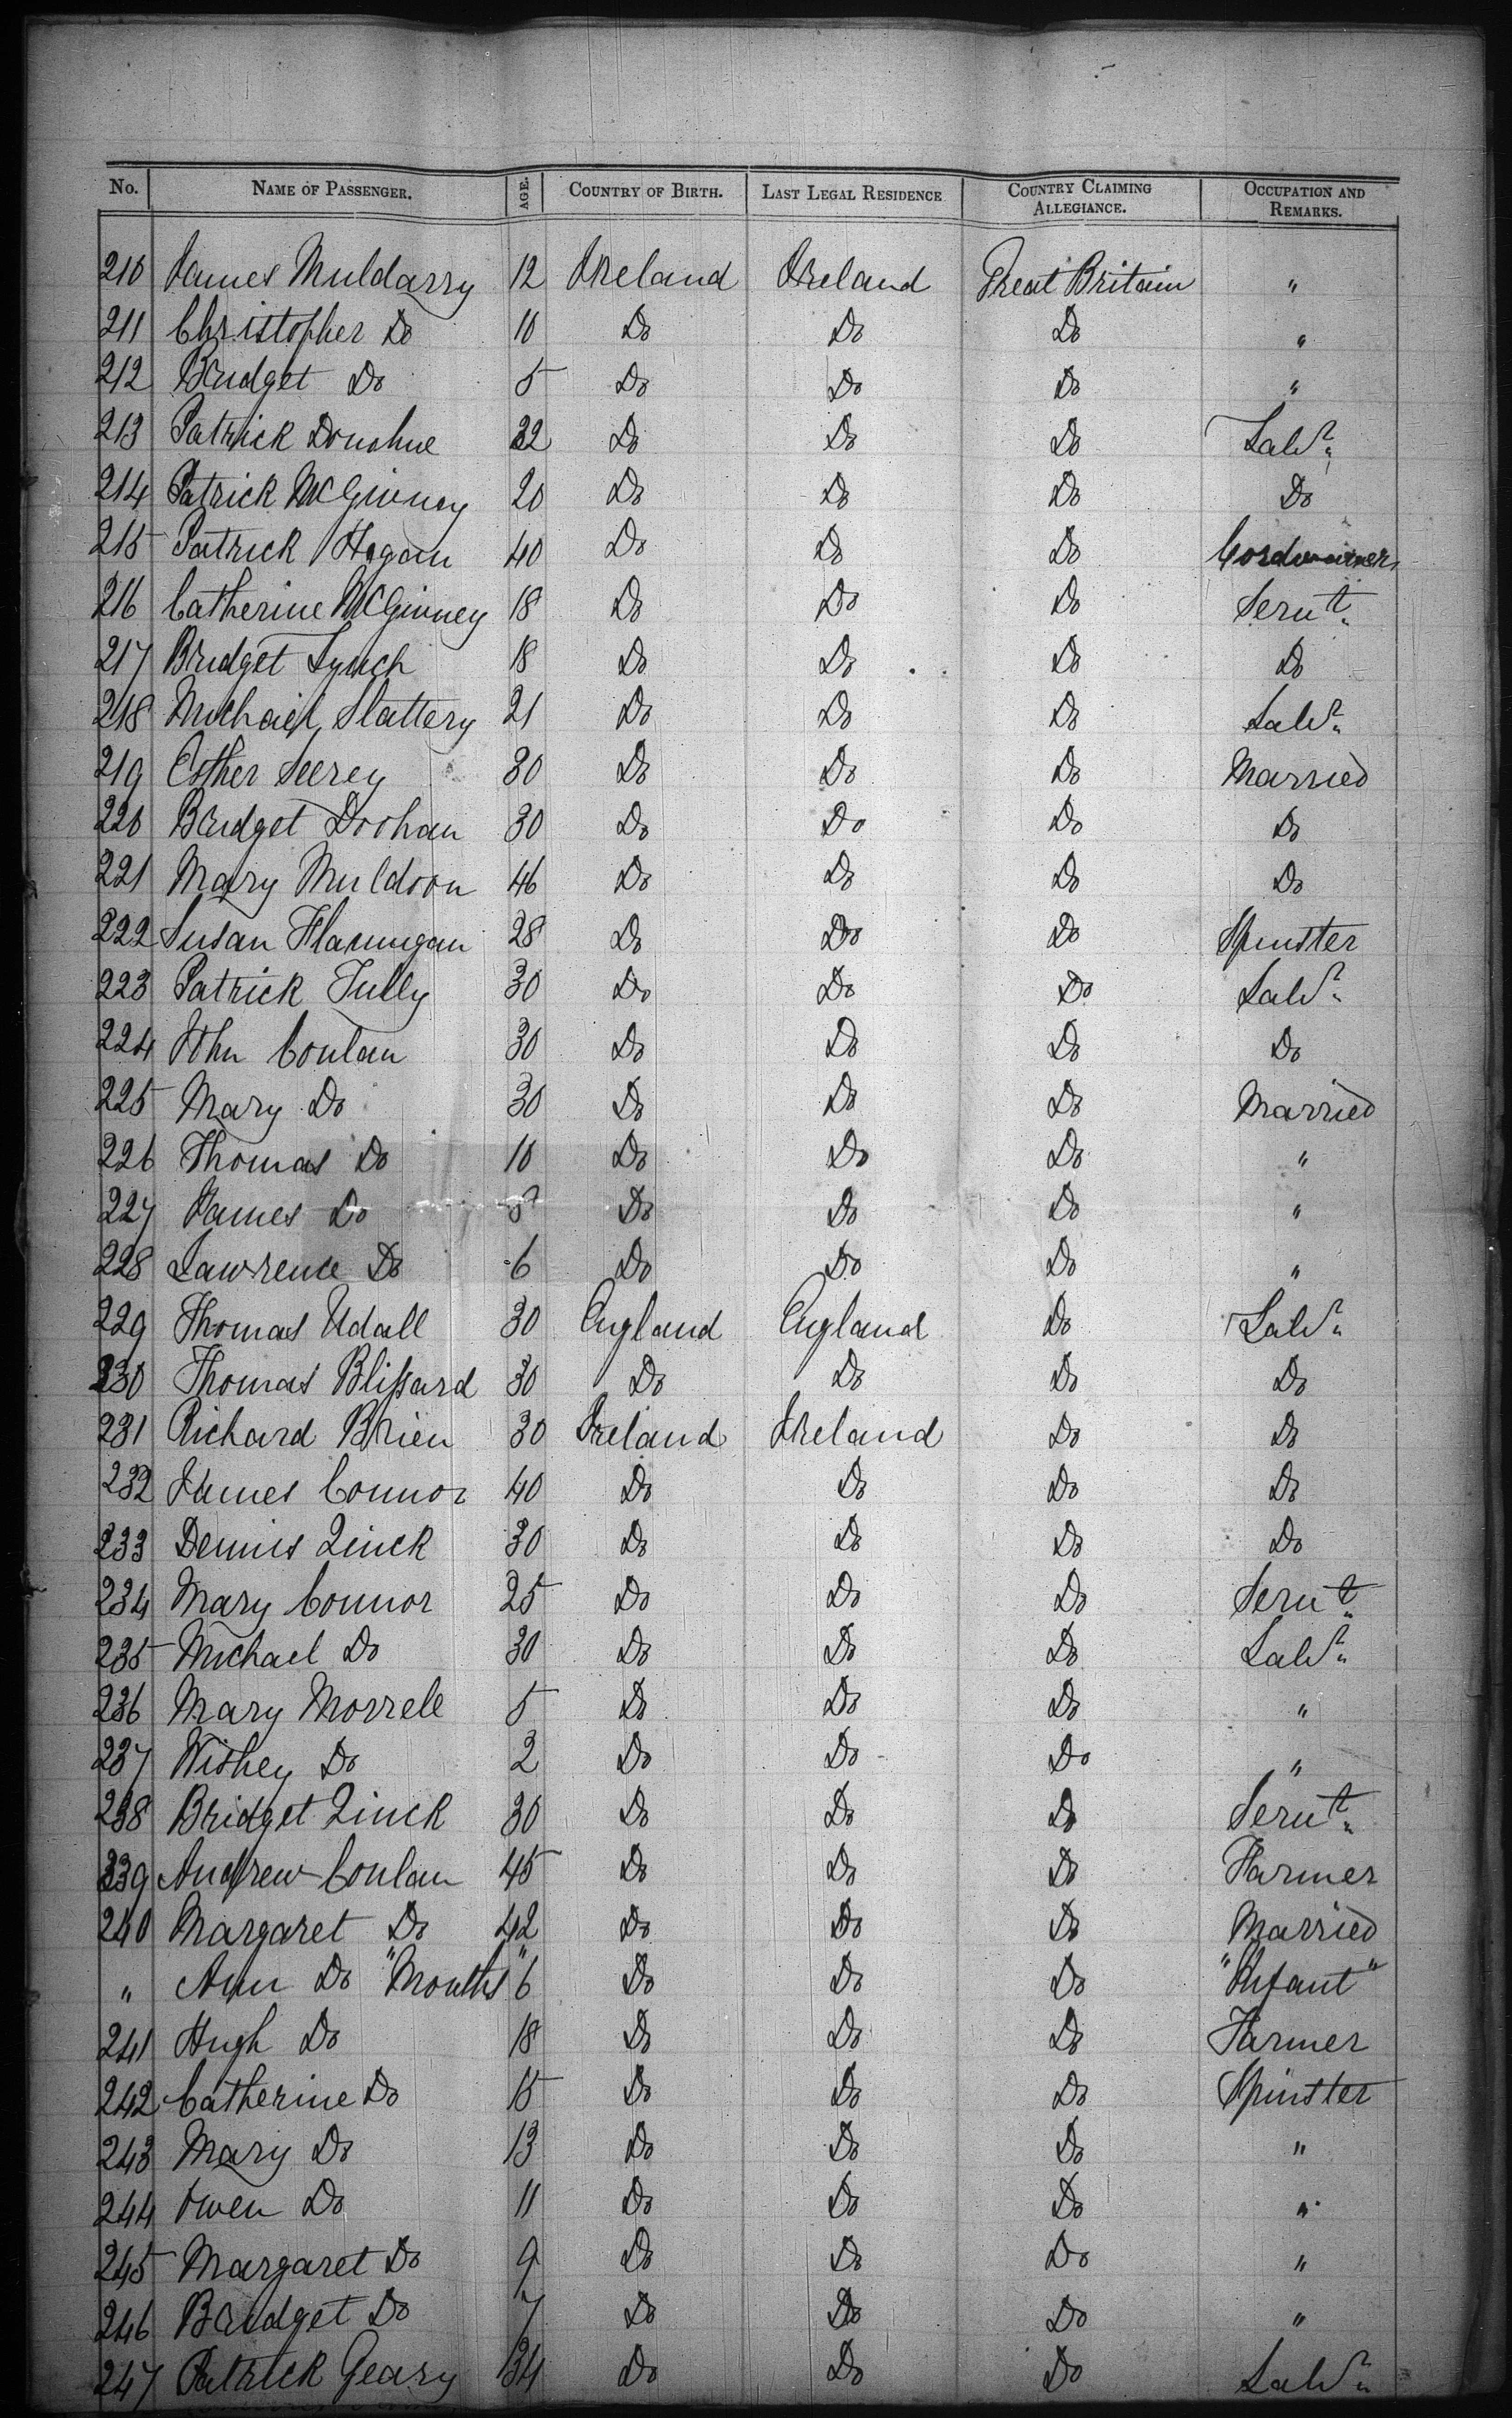 No. NAME OF PASSENGER. AGE. COUNTRY OF BIRTH. LAST LEGAL RESIDENCE COUNTRY CLAIMING ALLEGIANCE. OCCUPATION AND REMARKS.
210 James Muldarry 12 Ireland Ireland Great Britain "
211 Christopher Do 10 Do Do Do "
212 Bridget Do 5 Do Do Do "
213 Patrick Donohue 22 Do Do Do Labr.
214 Patrick McGinney 20 Do Do Do Do
215 Patrick Hogan 40 Do Do Do Cordwainer
216 Catherine McGinney 18 Do Do Do Servt.
217 Bridget Lynch 18 Do Do Do Do
218 Michael Slattery 21 Do Do Do Labr.
219 Esther Seerey 30 Do Do Do Married
220 Bridget Doohan 30 Do Do Do Do
221 Mary Muldoon 46 Do Do Do Do
222 Susan Flannigan 28 Do Do Do Spinster
223 Patrick Tully 30 Do Do Do Labr.
224 John Conlan 30 Do Do Do Do
225 Mary Do 30 Do Do Do Married
226 Thomas Do 10 Do Do Do "
227 James Do 8 Do Do Do "
228 Lawrence Do 6 Do Do Do "
229 Thomas Udall 30 England England Do Labr.
230 Thomas Blissard 30 Do Do Do Do
231 Richard Brien 30 Ireland Ireland Do Do
232 James Connor 40 Do Do Do Do
233 Dennis Zinck 30 Do Do Do Do
234 Mary Connor 25 Do Do Do Servt.
235 Michael Do 30 Do Do Do Labr.
236 Mary Morrell 5 Do Do Do "
237 Do 2 Do Do Do "
238 Bridget Zinck 30 Do Do Do Servt.
239 Andrew Conlan 45 Do Do Do Farmer
240 Margaret Do 42 Do Do Do Married
" Ann Do "Months" 6 Do Do Do "Infant"
241 Hugh Do 18 Do Do Do Farmer
242 Catherine Do 15 Do Do Do Spinster
243 Mary Do 13 Do Do Do "
244 Owen Do 11 Do Do Do "
245 Margaret Do 9 Do Do Do "
246 Bridget Do 7 Do Do Do "
247 Patrick Geary 34 Do Do Do Labr.